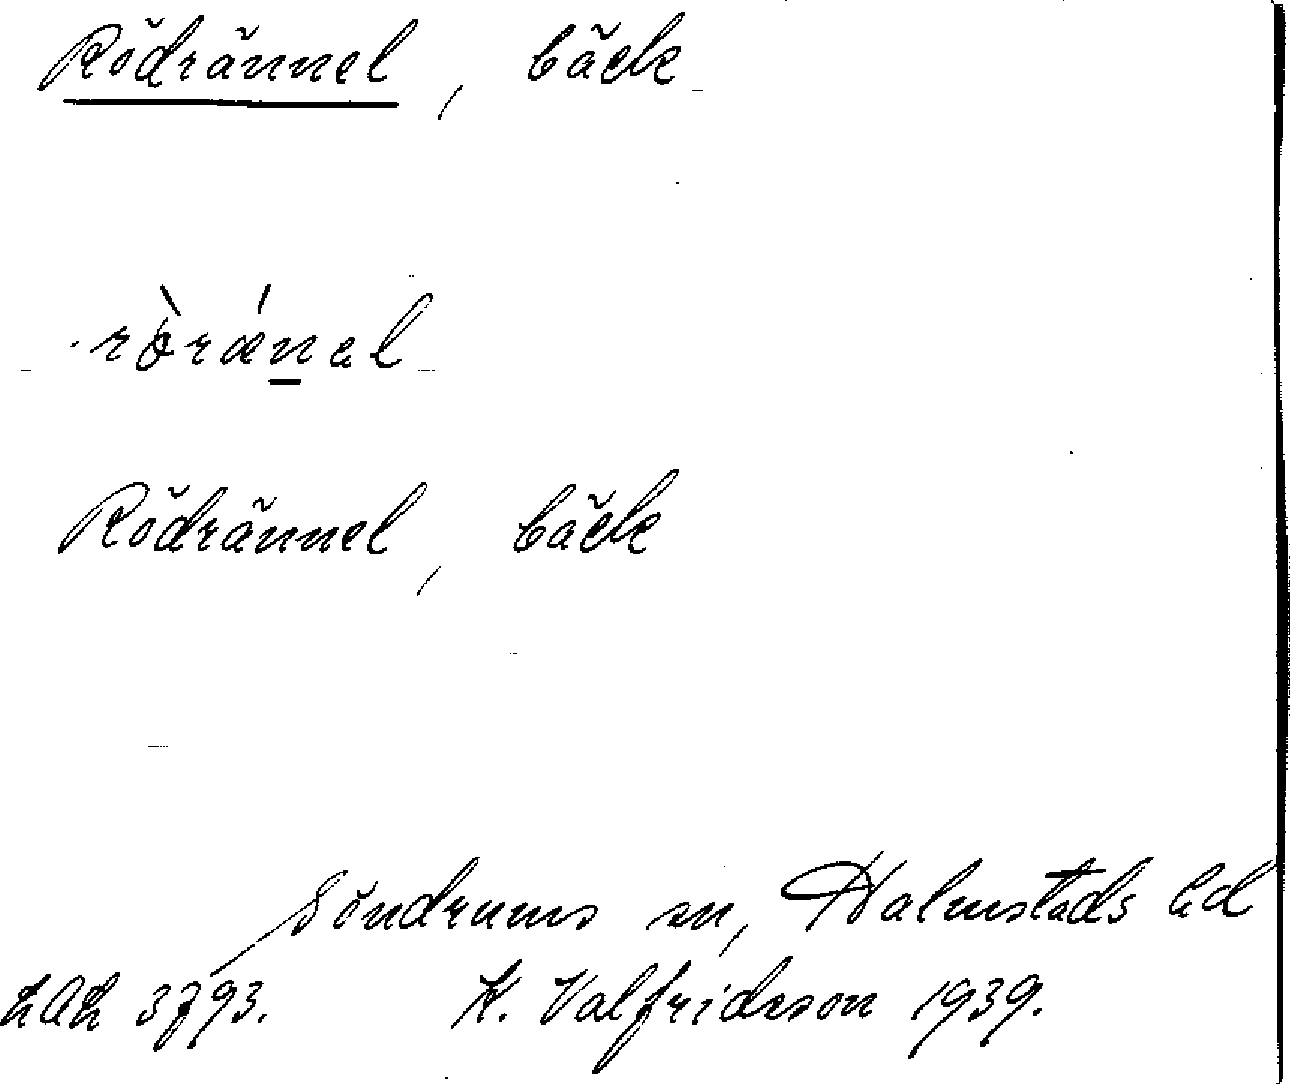 Rödrännel, bäck
rò̤rǽn̲əl
Rödrännel, bäck
Söndrums sn, Halmstads hd
LAL 3793. K. Valfridsson 1939.